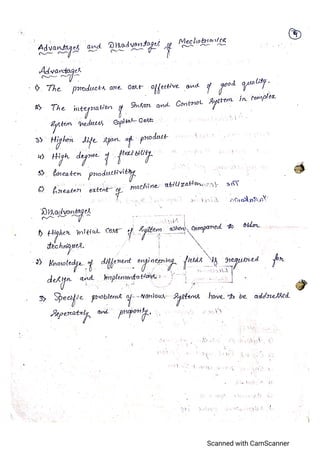 5
Advantages and Disadvantages of Mechatronics
Advantages
1) The products are cost effective and of good quality.
2) The integration of Sensor and Control System in complex
System reduces Capital Cost
3) Higher life span of product
4) High degree of flexibility
5) Greater productivity
6) Greater extent of machine utilization
Disadvantages
1) Higher initial cost of System when compared to other
techniques.
2) Knowledge of different engineering fields is required for
design and implementation.
3) Specific problems of various Systems have to be addressed
Seperately and properly.
Scanned with CamScanner